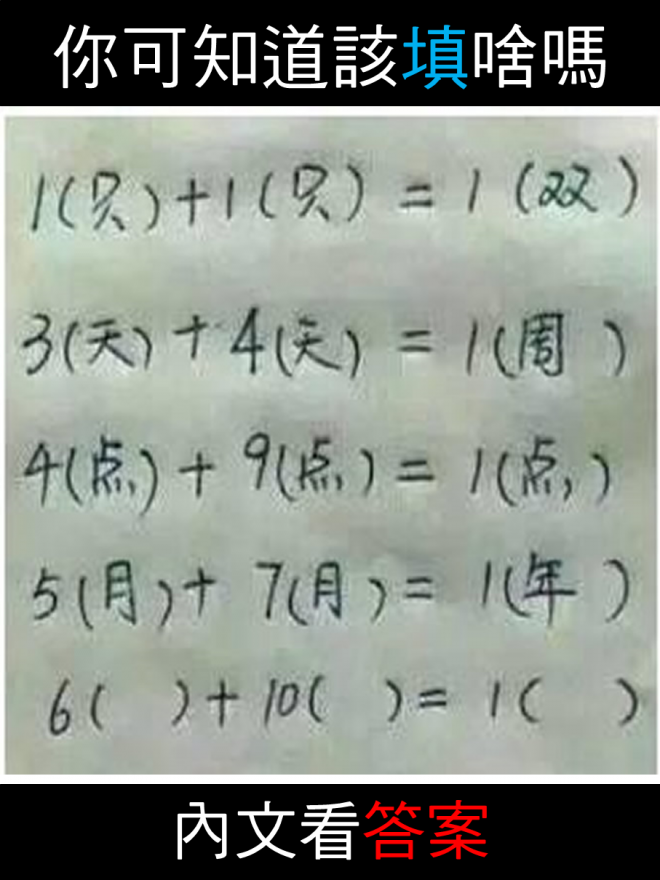 你可知道該填啥嗎
1(只)+1(只)=1(双)
3(天)+4(天)=1(周)
4(点)+9(点)=1(点)
5(月)+7(月)=1(年)
6( )+10( )=1( )
內文看答案